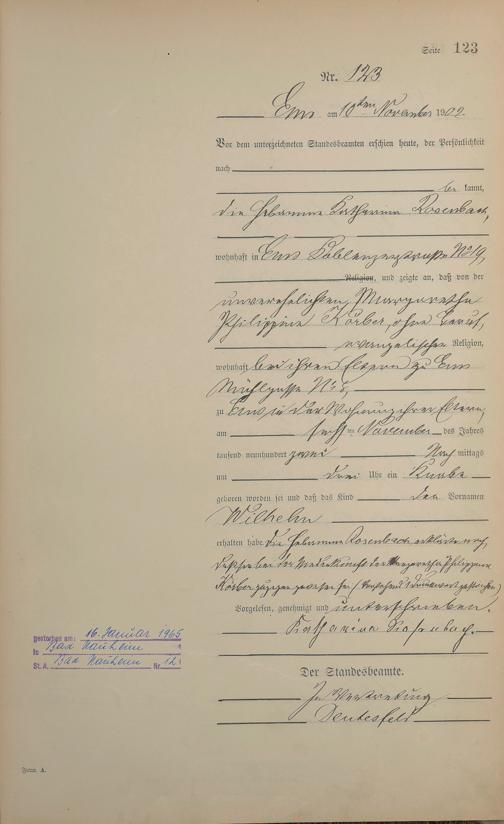 Seite 123
Nr. 123
Ems am 10ten November 1902.
Vor dem unterzeichneten Standesbeamten erschien heute, der Persönlichkeit
nach
bekannt,
die Hebamme Katharina Rosenbach,
wohnhaft in Ems Koblenzerstraße No 19,
Religion, und zeigte an, daß von der
unverehelichten Margarethe
Philippine Körber, ohne Beruf,
evangelischer Religion,
wohnhaft bei ihren Eltern zu Ems
Mühlgasse No 8,
zu Ems in der Wohnung ihrer Eltern,
am sechsten November des Jahres
tausend neunhundert zwei Nachmittags
um drei Uhr ein Knabe
geboren worden sei und daß das Kind den Vornamen
Wilhelm
erhalten habe. Die Hebamme Rosenbach erklärte noch,
daß sie bei der Niederkunft der Margaretha Philippine
Körber zugegen gewesen sei.
Vorgelesen, genehmigt und unterschrieben.
Katharina Rosenbach.
Der Standesbeamte.
In Vertretung
gestorben am: 16. Januar 1965
in Bad Nauheim
St. A. Bad Nauheim Nr. 12
Form. A.